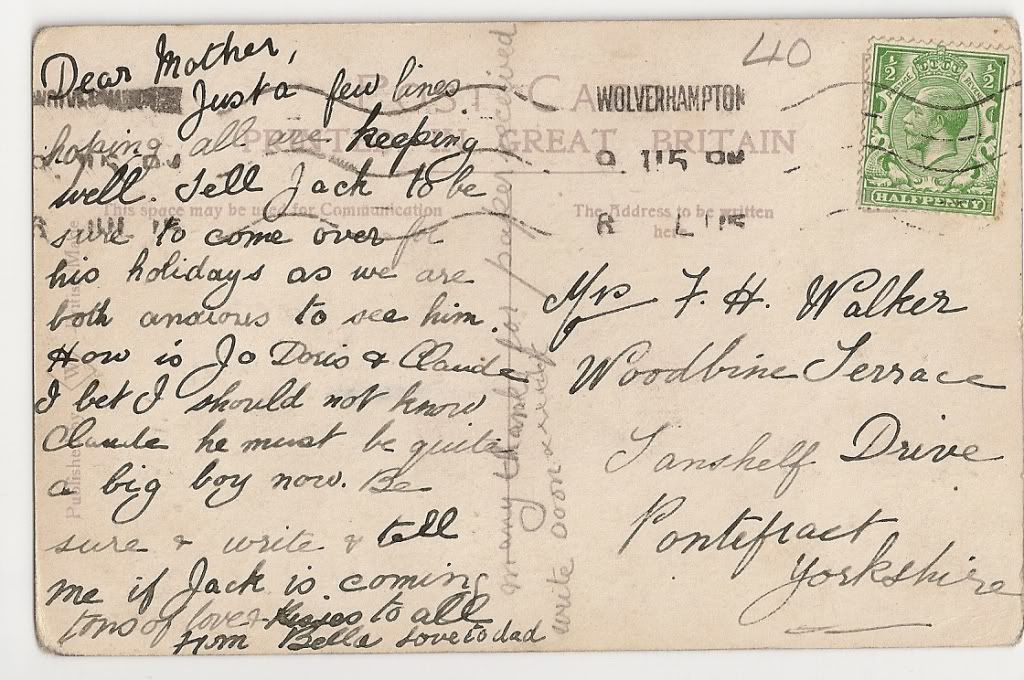 Dear Mother,
Just a few lines
hoping all are keeping
well. Tell Jack to be
sure to come over for
his holidays as we are
both anxious to see him.
How is Jo Doris & Claude
I bet I should not know
Claude he must be quite
a big boy now. Be
sure & write & tell
me if Jack is coming
tons of love & Kisses to all
from Bella love to dad
many thanks for paper received
write soon
POST CARD
PRINTED IN GREAT BRITAIN
This space may be used for Communication
The Address to be written
here
Published by
40
WOLVERHAMPTON
½ ½
HALFPENNY
Mrs F. H. Walker
Woodbine Terrace
Tanshelf Drive
Pontefract
Yorkshire